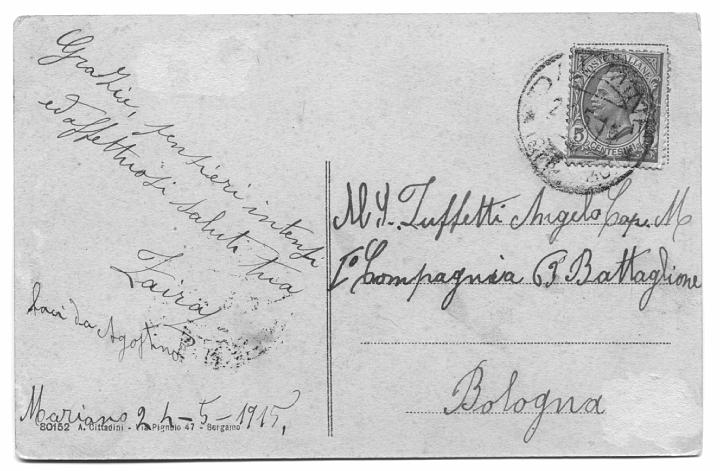 Grazie, pensieri intensi
ed affettuosi saluti tua
Zaira
Baci da Agostino
Mariano 24-5-1915,
80152 A. Cittadini - Via Pignolo 47 - Bergamo
POSTE ITALIANE
5
CENTESIMI
Tuffetti Angelo Cap. M
1º Compagnia 6 Battaglione
Bologna